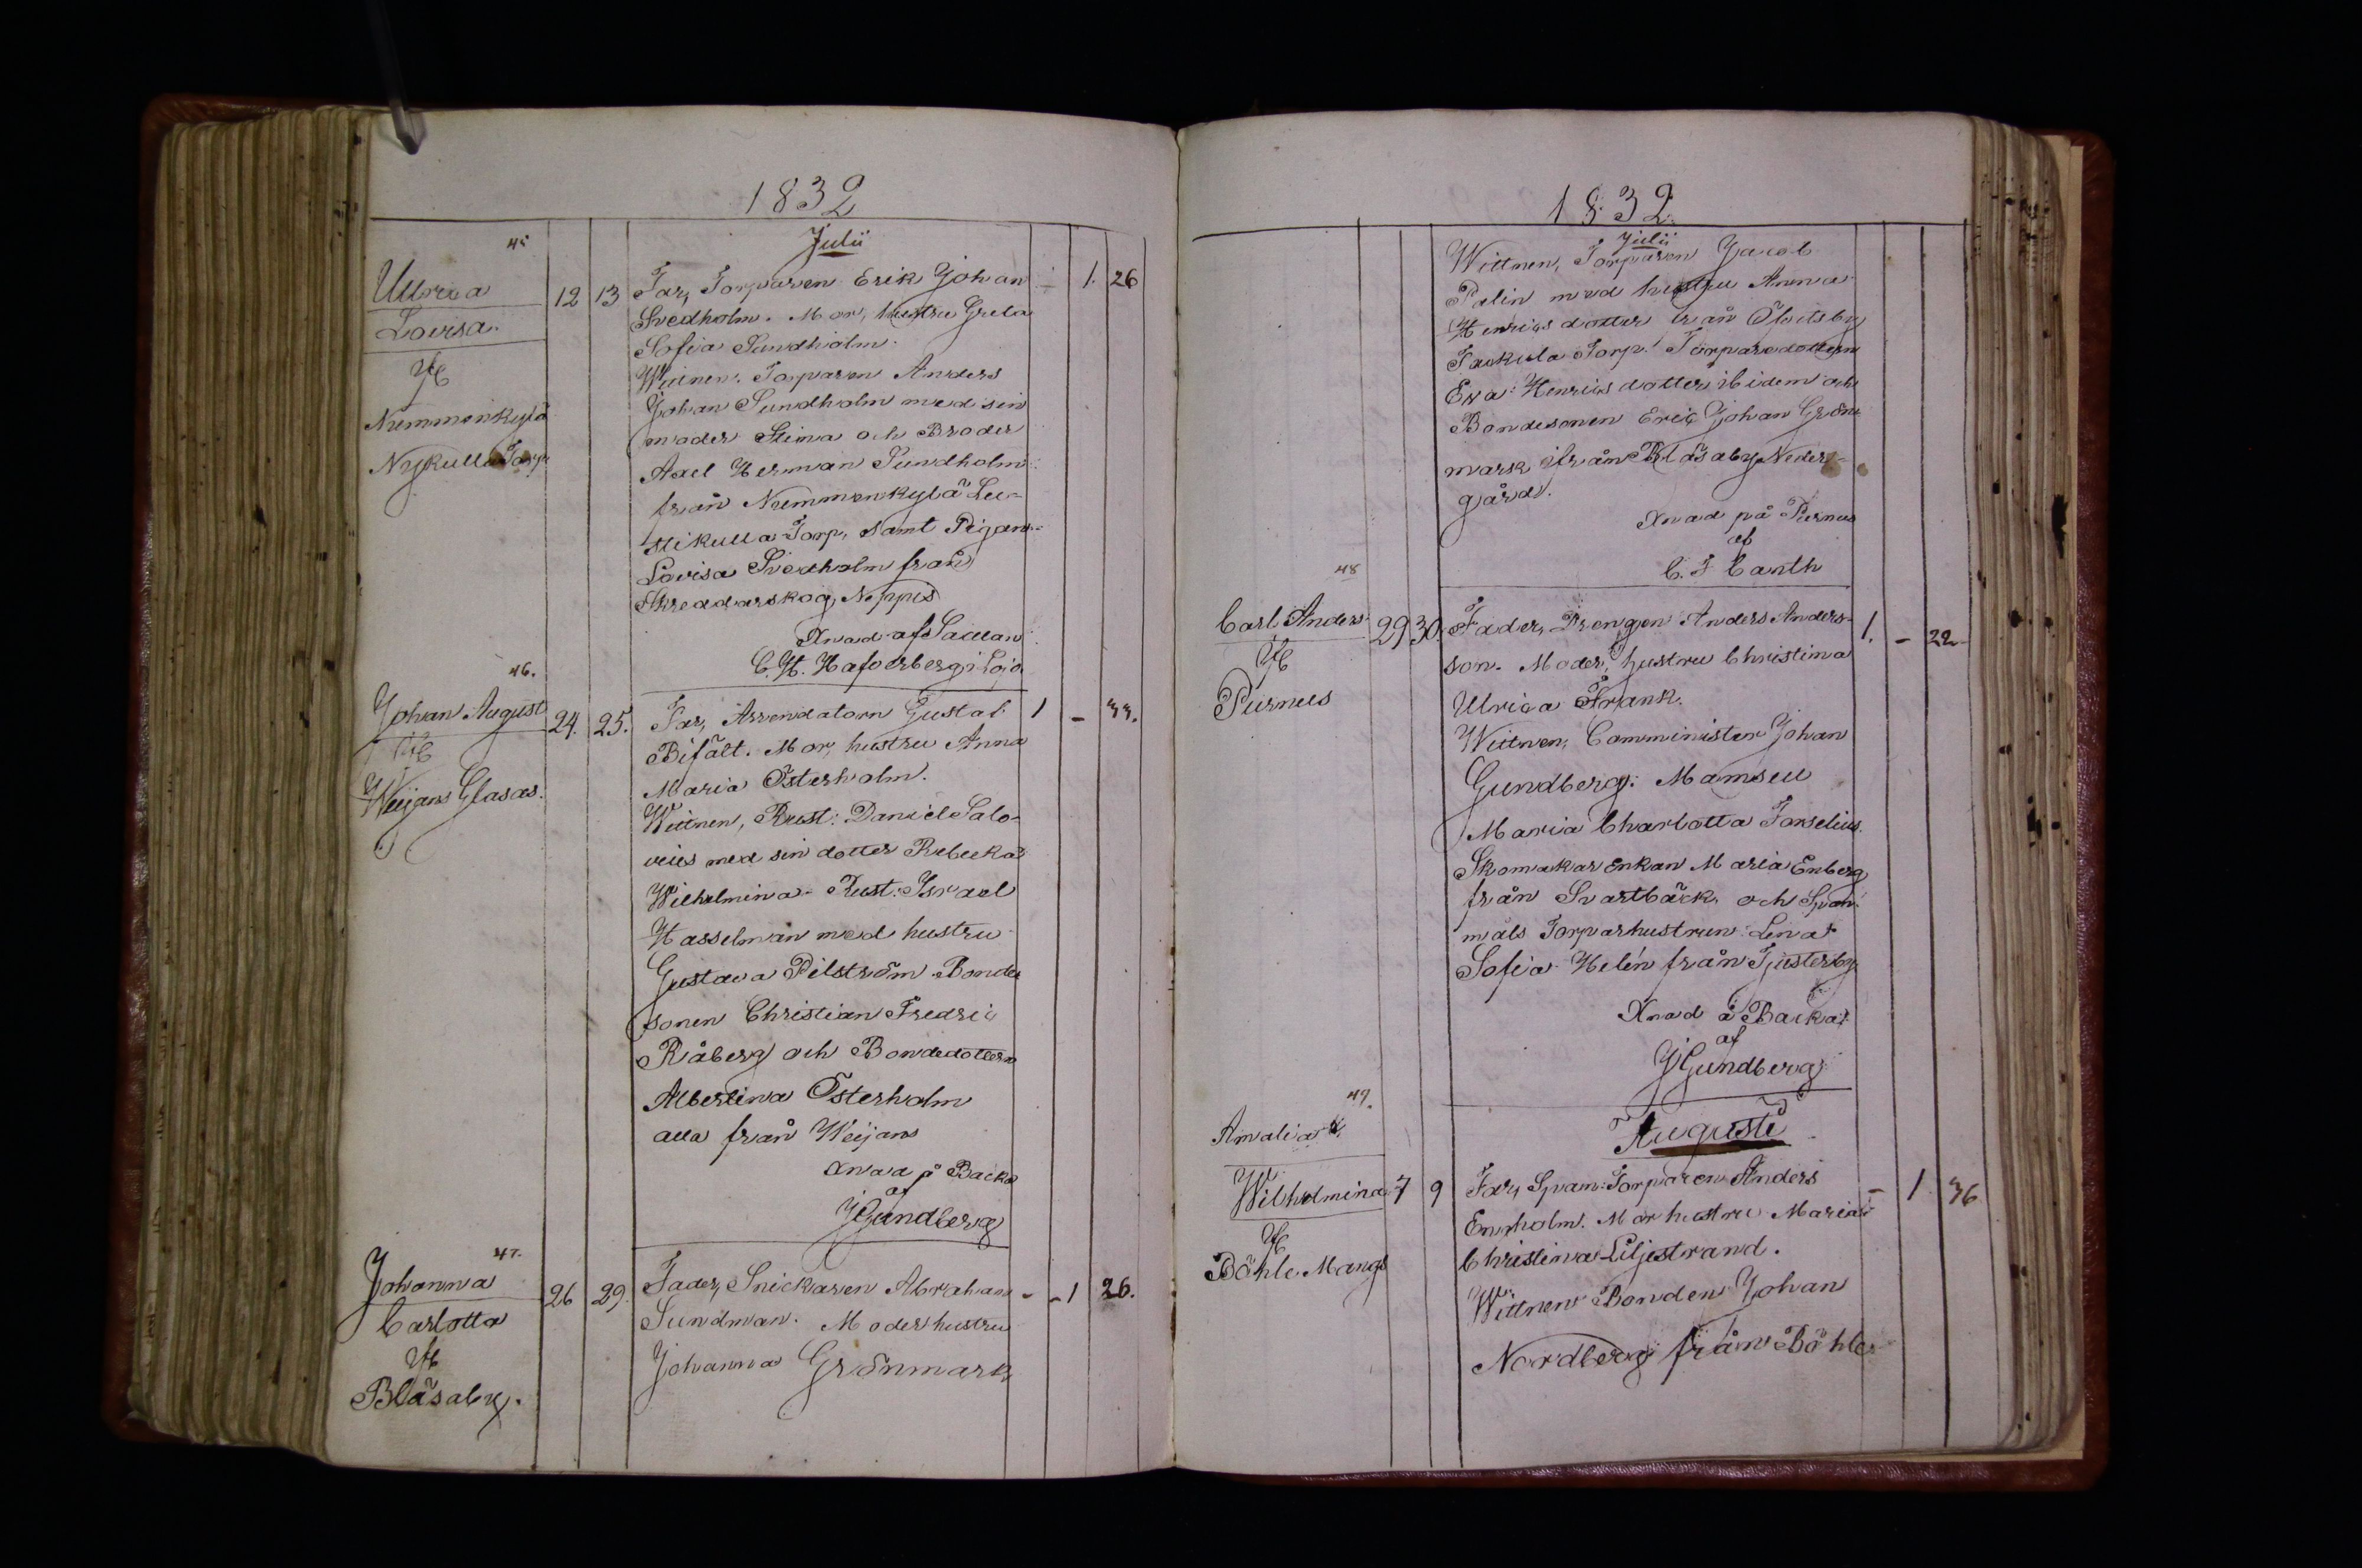 1832
Julii
45
Ullrica
Lovisa.
Nummenkylä
Nykulla Torp
12 13
Far, Torparen Erik Johan
Svedholm. Mor, hustru Greta
Sofia Sundholm.
Wittnen. Torparen Anders
Johan Sundholm med sin
moder Stina och Broder
Axel Herman Sundholm
från Nummenkylä Lu-
stikulla Torp, samt Pigan
Lovisa Svedholm från
Skreddarskog, Noppis
Xnad af Sacellan
C. H. Hafverberg i Lojo
- 1. 26
46.
Johan August
Weijans Glasas.
24. 25.
Far, Arrendatorn Gustaf
Bifält. Mor, hustru Anna
Maria Österholm.
Wittnen, Rust: Daniel Salo-
veus med sin dotter Rebecka
Wilhelmina - Rust: Israel
Hasselman med hustru
Gustava Pilström Bonde
sonen Christian Fredric
Råberg och Bondedottern
Albertina Österholm
alla från Weijans
Xnad å Backa
af
JGundberg
1 - 33.
47.
Johanna
Carlotta
Blåsaby.
26 29.
Fader, Snickaren Abraham
Sundman. Moder hustru
Johanna Grönmark
- 1 26.
1832.
Julii
Wittnen, Torparen Jacob
Palin med hustru Anna
Henricsdotter från Öfvitsby
Backula Torp. Torparedottern
Eva Henricsdotter ibidem och
Bondesonen Eric Johan Grön
mark ifrån Blåsaby Neder-
gård.
Xnad på Purnus
af
C. F Canth
48
Carl Anders
Purnus
29 30.
Fader, Drengen Anders Anders-
son. Moder, hustru Christina
Ulrica Frank.
Wittnen, Comministern Johan
Gundberg. Mamsell
Maria Charlotta Forselius.
Skomakar Enkan Maria Enberg
från Svartbäck och Span-
måls Torparhustrun Lena
Sofia Helén från Tjusterby
Xnad å Backa
af
JGundberg
1. - 22
49.
Amalia
Wilhelmina
Böhle Mangs
7 9
Augusti
Far, Spanm: Torparen Anders
Engholm. Mor hustru Maria
Christina Liljestrand.
Wittnen Bonden Johan
Nordberg från Böhle
- 1 36